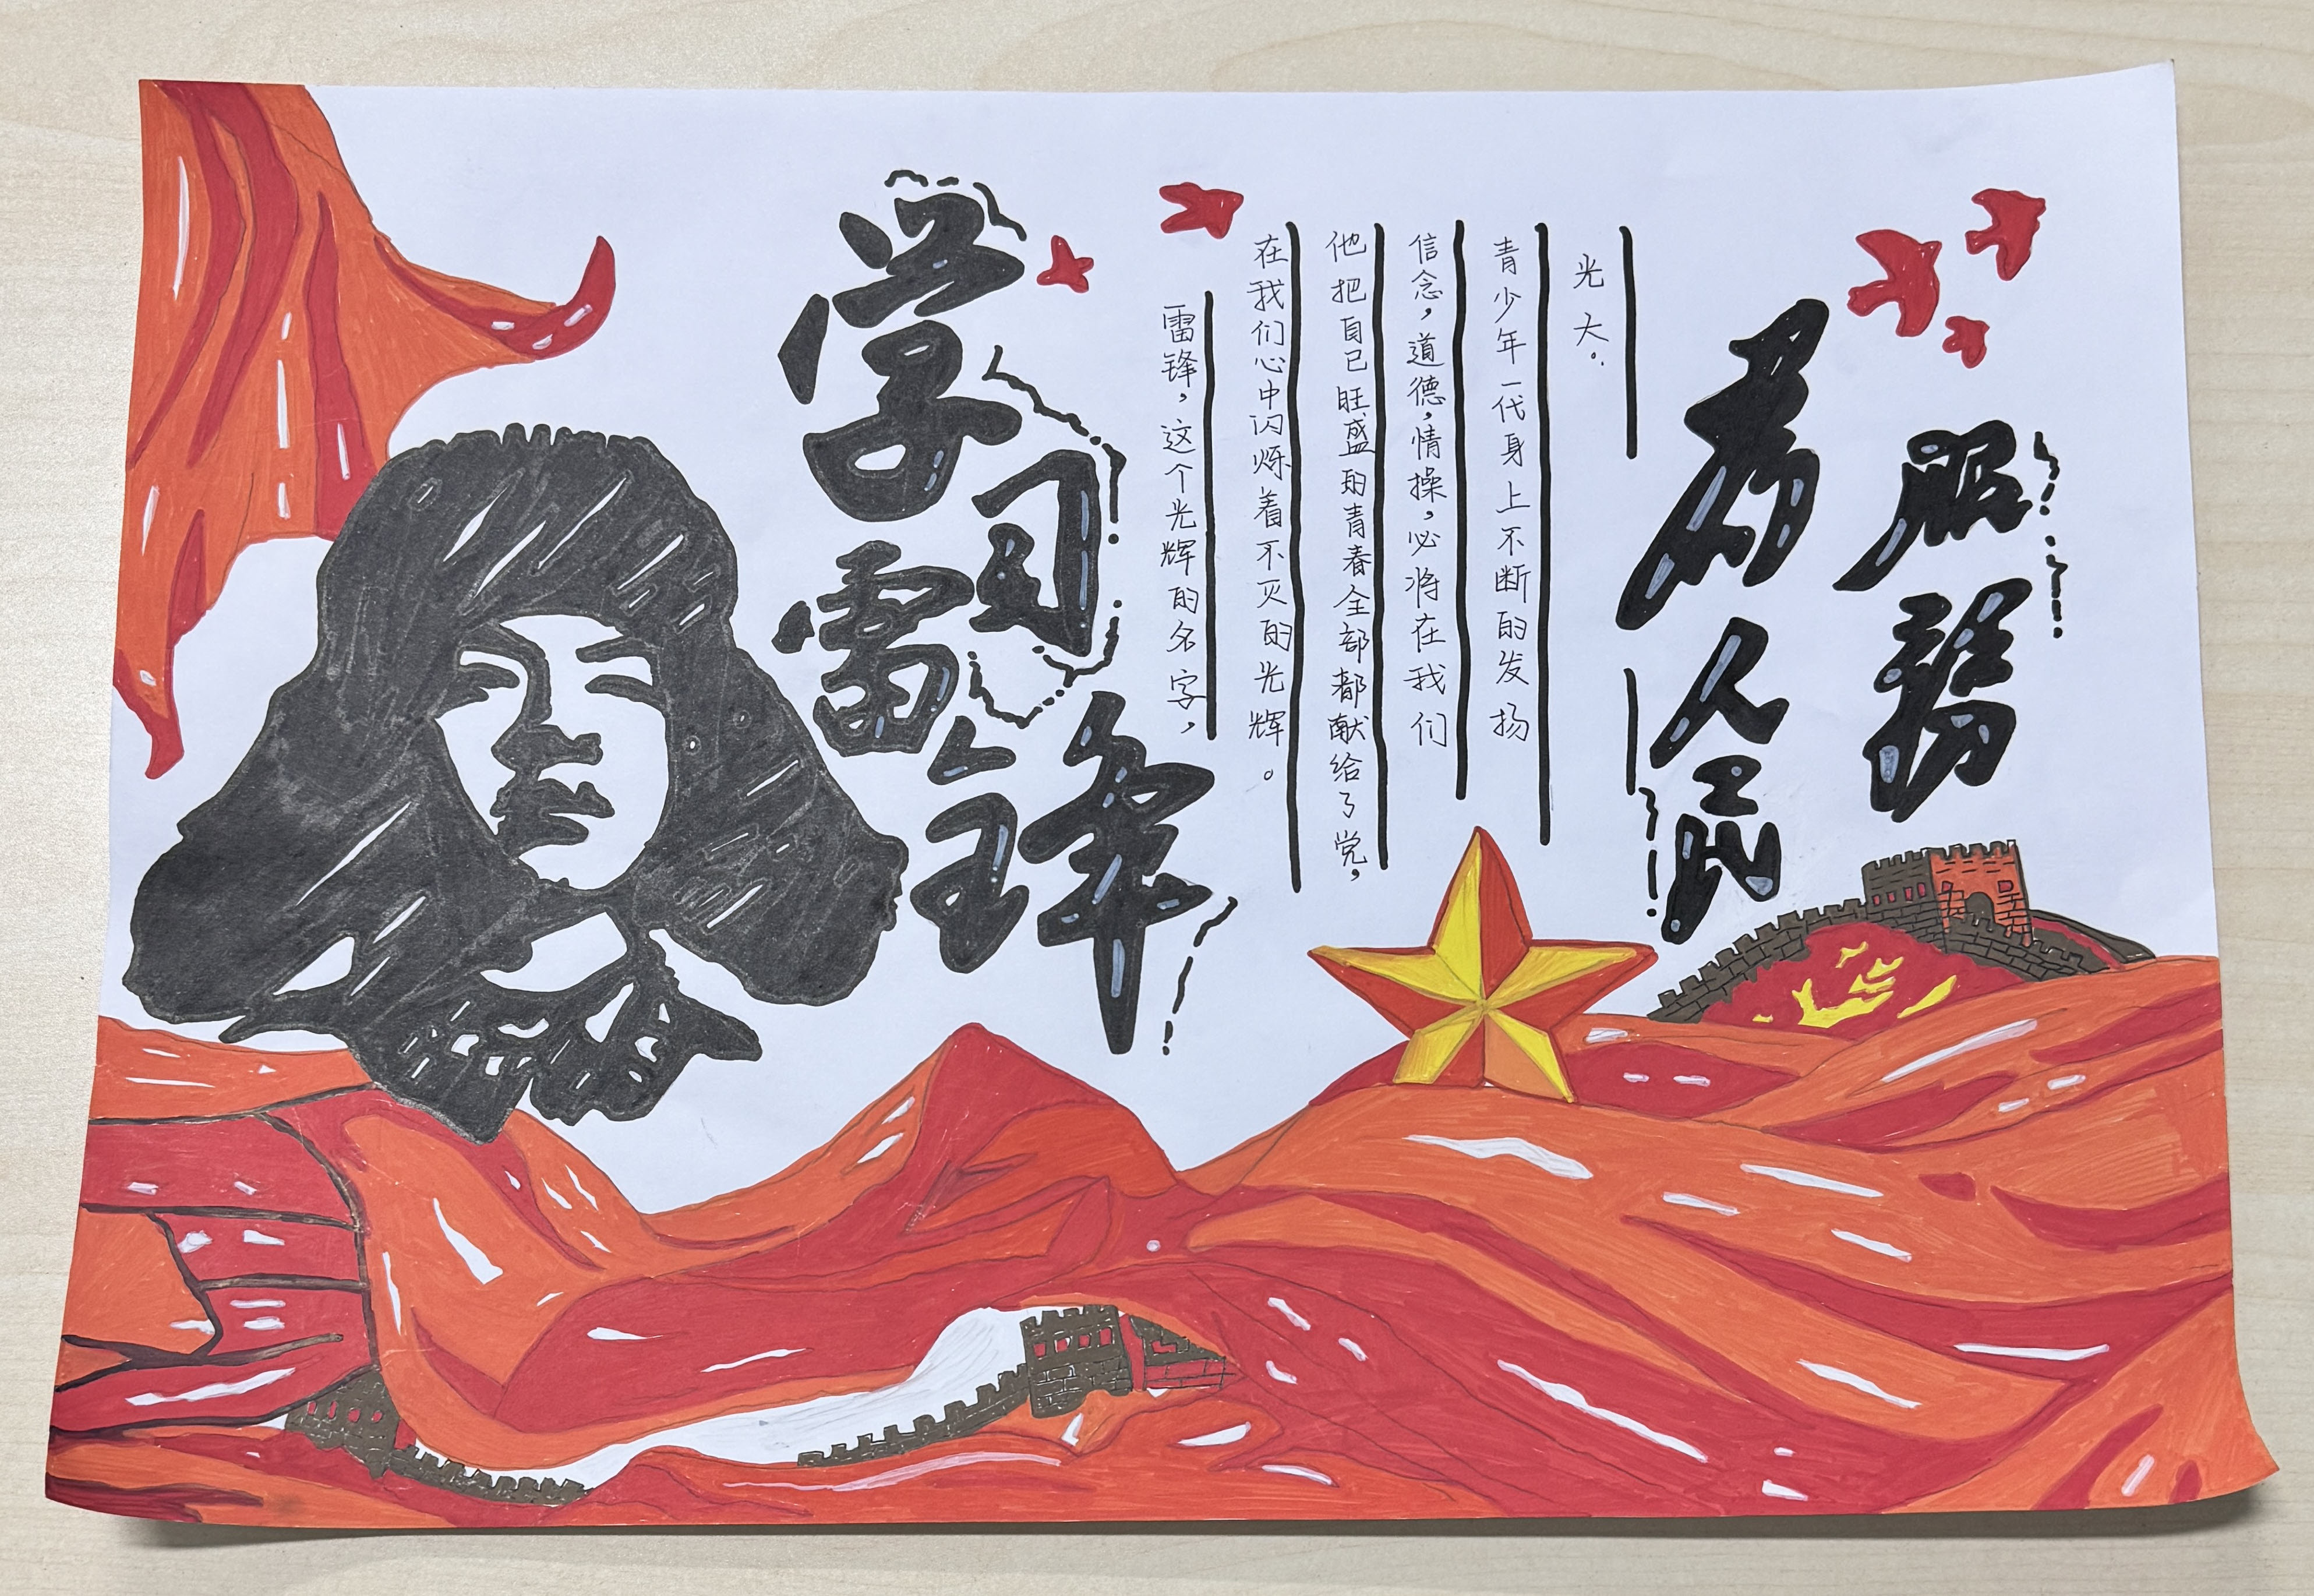 学习
雷锋
雷锋，这个光辉的名字，
在我们心中闪烁着不灭的光辉。
他把自己旺盛的青春全部都献给了党，
信念，道德，情操，必将在我们
青少年一代身上不断的发扬
光大。
為人民
服務